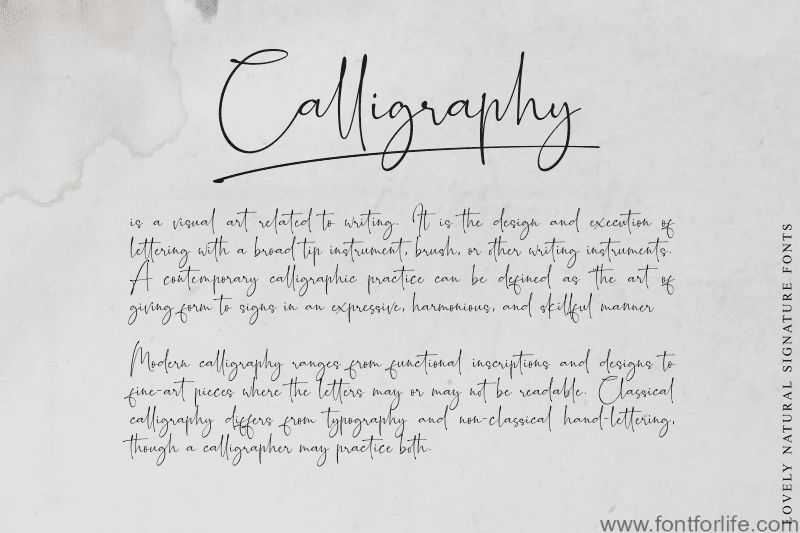 Calligraphy
is a visual art related to writing. It is the design and execution of
lettering with a broad tip instrument, brush, or other writing instruments.
A contemporary calligraphic practice can be defined as the art of
giving form to signs in an expressive, harmonious, and skillful manner
Modern calligraphy ranges from functional inscriptions and designs to
fine-art pieces where the letters may or may not be readable. Classical
calligraphy differs from typography and non-classical hand-lettering,
though a calligrapher may practice both.
LOVELY NATURAL SIGNATURE FONTS
www.fontforlife.com